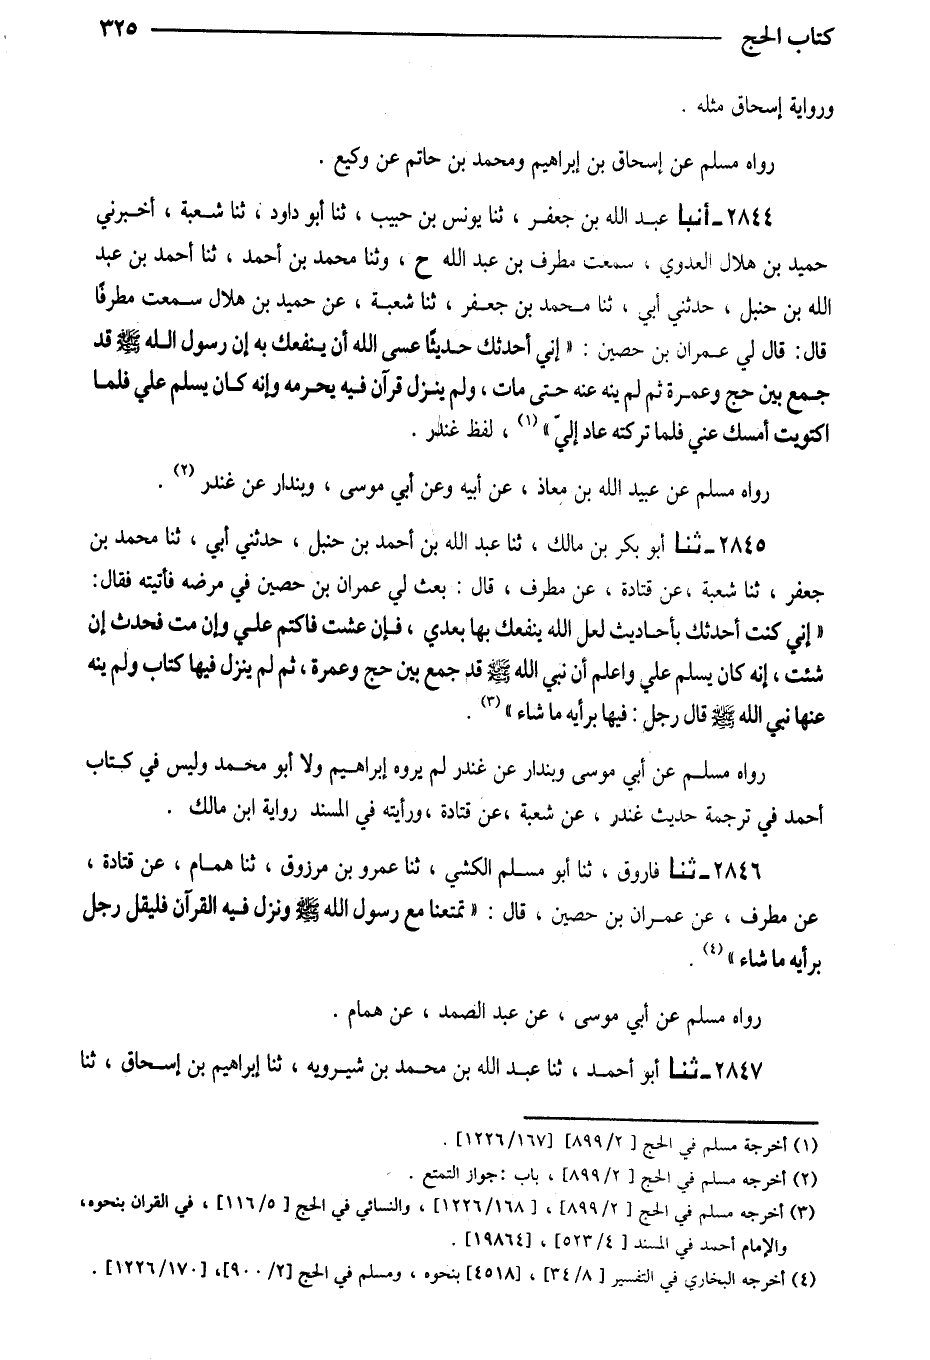 كتاب الحج ٣٢٥
ورواية إسحاق مثله .
رواه مسلم عن إسحاق بن إبراهيم ومحمد بن حاتم عن وكيع .
٢٨٤٤ ـ أنبا عبد الله بن جعفر ، ثنا يونس بن حبيب ، ثنا أبو داود ، ثنا شعبة ، أخبرني
حميد بن هلال العدوي ، سمعت مطرف بن عبد الله ح ، وثنا محمد بن أحمد ، ثنا أحمد بن عبد
الله بن حنبل ، حدثني أبي ، ثنا محمد بن جعفر ، ثنا شعبة ، عن حميد بن هلال سمعت مطرفًا
قال: قال لي عمران بن حصين : « إني أحدثك حديثًا عسى الله أن ينفعك به إن رسول الله ﷺ قد
جمع بين حج وعمرة ثم لم ينه عنه حتى مات ، ولم ينزل قرآن فيه يحرمه وإنه كان يسلم علي فلما
اكتويت أمسك عني فلما تركته عاد إليّ » (١) ، لفظ غندر .
رواه مسلم عن عبيد الله بن معاذ ، عن أبيه وعن أبي موسى ، وبندار عن غندر (٢) .
٢٨٤٥ ـ ثنا أبو بكر بن مالك ، ثنا عبد الله بن أحمد بن حنبل ، حدثني أبي ، ثنا محمد بن
جعفر ، ثنا شعبة ،عن قتادة ، عن مطرف ، قال : بعث لي عمران بن حصين في مرضه فأتيته فقال:
« إني كنت أحدثك بأحاديث لعل الله ينفعك بها بعدي ، فإن عشت فاكتم علي وإن مت فحدث إن
شئت ، إنه كان يسلم علي واعلم أن نبي الله ﷺ قد جمع بين حج وعمرة ، ثم لم ينزل فيها كتاب ولم ينه
عنها نبي الله ﷺ قال رجل : فيها برأيه ما شاء » (٣) .
رواه مسلم عن أبي موسى وبندار عن غندر لم يروه إبراهيم ولا أبو محمد وليس في كتاب
أحمد في ترجمة حديث غندر ، عن شعبة ،عن قتادة ،ورأيته في المسند رواية ابن مالك .
٢٨٤٦ ـ ثنا فاروق ، ثنا أبو مسلم الكشي ، ثنا عمرو بن مرزوق ، ثنا همام ، عن قتادة ،
عن مطرف ، عن عمران بن حصين ، قال : « تمتعنا مع رسول الله ﷺ ونزل فيه القرآن فليقل رجل
برأيه ما شاء » (٤) .
رواه مسلم عن أبي موسى ، عن عبد الصمد ، عن همام .
٢٨٤٧ ـ ثنا أبو أحمد ، ثنا عبد الله بن محمد بن شيرويه ، ثنا إبراهيم بن إسحاق ، ثنا
(١) أخرجة مسلم في الحج [ ٨٩٩/٢] [١٢٢٦/١٦٧] .
(٢) أخرجه مسلم في الحج [ ٨٩٩/٢] ، باب :جواز التمتع .
(٣) أخرجه مسلم في الحج [ ٨٩٩/٢] ، [ ١٢٢٦/١٦٨] ، والنسائي في الحج [ ١١٦/٥] ، في القران بنحوه،
والإمام أحمد في المسند [ ٥٢٣/٤] ، [١٩٨٦٤] .
(٤) أخرجه البخاري في التفسير [ ٣٤/٨] ، [٤٥١٨] بنحوه ، ومسلم في الحج [٩٠٠/٢]، [١٢٢٦/١٧٠] .